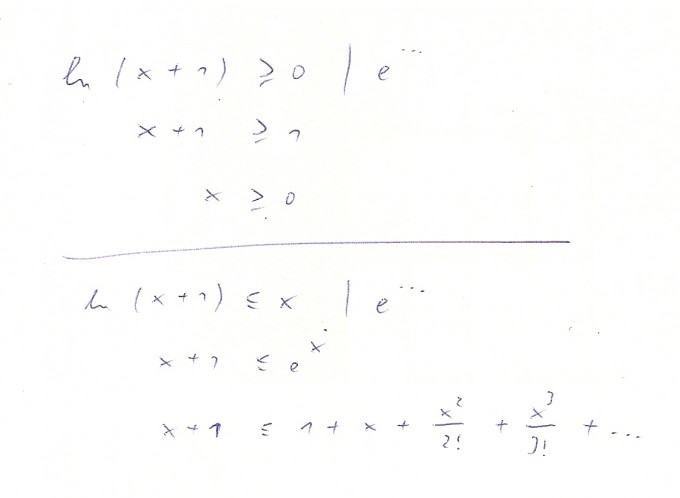 ln (x + 1) ≥ 0 | e^...
x + 1 ≥ 1
x ≥ 0
ln (x + 1) ≤ x | e^...
x + 1 ≤ e^x
x + 1 ≤ 1 + x + x^2/2! + x^3/3! + ...